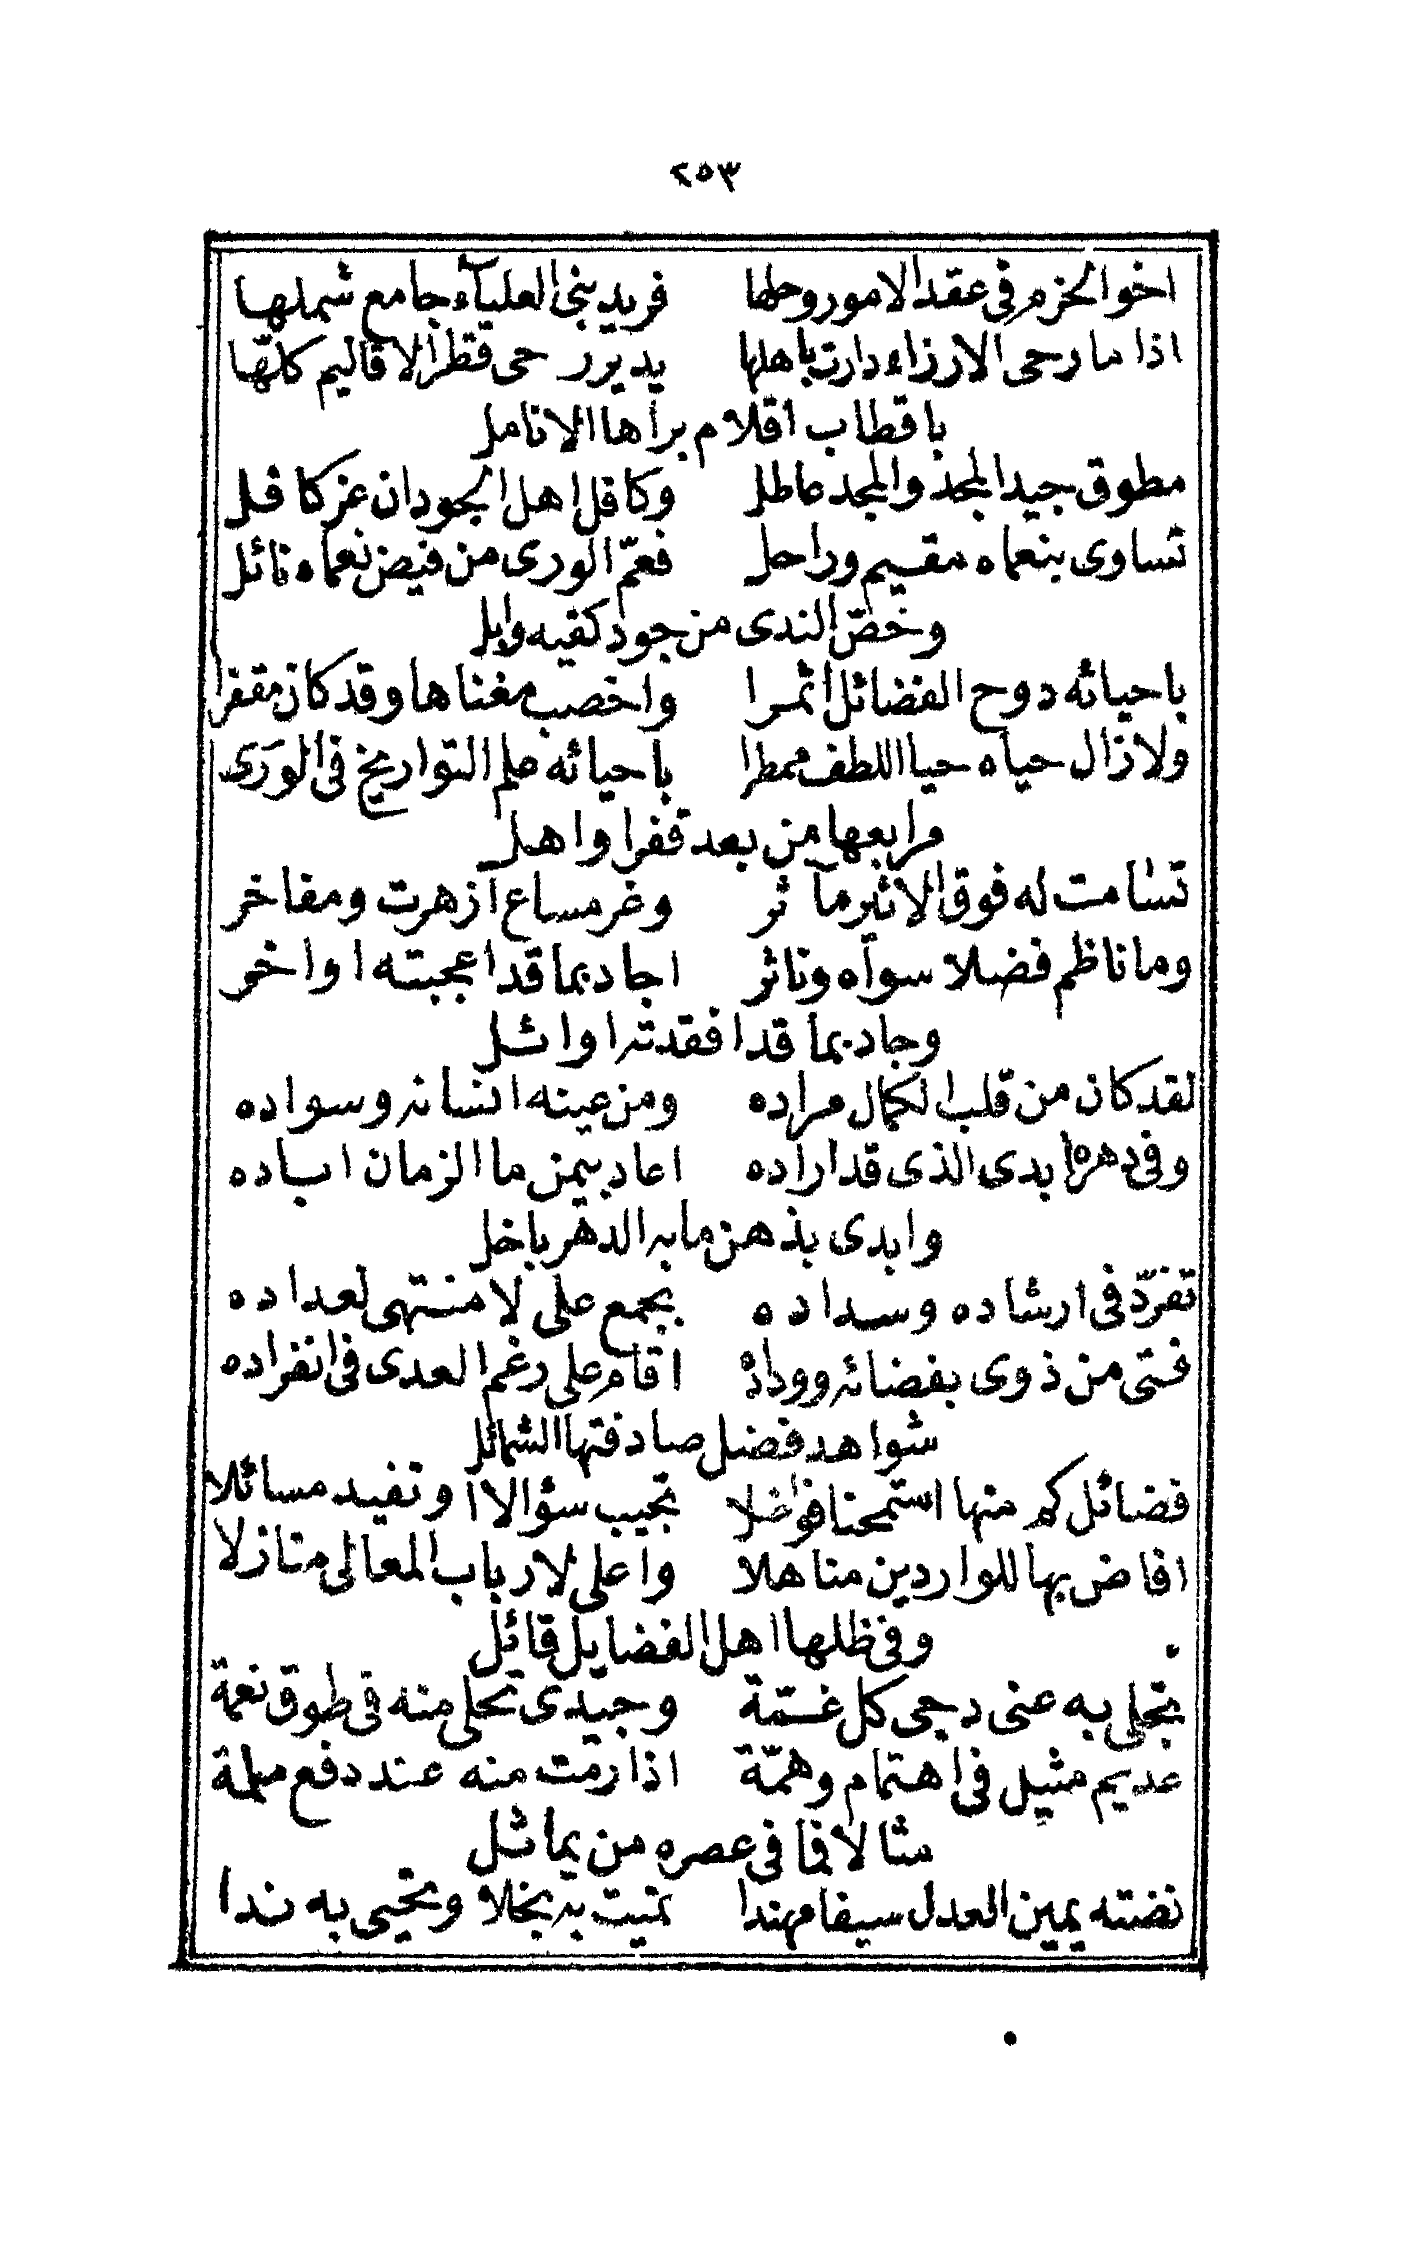 ٢٥٣
اخو الحزم فى عقد الامور وحلها فريد بنى العلياء جامع شملها
اذا ما رحى الارزاء دارت باهلها يدير رحى قطر الاقاليم كلها
باقطاب اقلام براها الانامل
مطوق جيد المجد والمجد عاطل وكافل اهل الجود ان عز كافل
تساوى بنعماه مقيم وراحل فعمّ الورى من فيض نعماه نائل
وخصّ الندى من جود كفيه وابل
باحيائه دوح الفضائل اثمرا واخصب مغناها وقد كان مقفرا
ولا زال حياه حيا اللطف ممطرا باحيائه علم التواريخ فى الورى
مرابعها من بعد قفر اواهل
تسامت له فوق الاثير مآثر وغر مساع ازهرت ومفاخر
وما ناظم فضلا سواه وناثر اجاد بما قد اعجبته اواخر
وجاد بما قد افقدته اوائل
لقد كان من قلب الكمال مراده ومن عينه انسانه وسواده
وفى دهره ابدى الذى قد اراده اعاد بيمن ما الزمان اباده
وابدى بذهن ما به الدهر باخل
تفرّد فى ارشاده وسداده بجمع على لا منتهى لعداده
فتى من ذوى بفضائه ووداده اقام على رغم العدى فى انفراده
شواهد فضل صادفتها الشمائل
فضائل كم منها استمحنا فواضلا تجيب سؤالا او تفيد مسائلا
افاض بها للواردين مناهلا واعلى لارباب المعالى منازلا
وفى ظلها اهل الفضايل قائل
تجلى به عنى دجى كل غمّة وجيدى تحلى منه فى طوق نعمة
عديم مثيل فى اهتمام وهمّة اذا رمت منه عند دفع ملمة
مثالا فما فى عصره من يماثل
نضته يمين العدل سيفا مهندا تميت به بخلا وتحيى به ندا